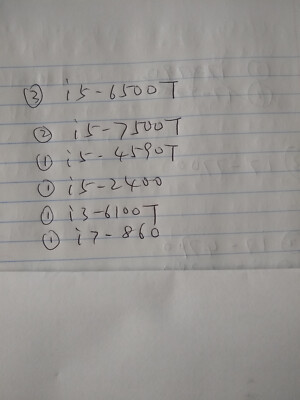 ③ i5-6500T
② i5-7500T
① i5-4590T
① i5-2400
① i3-6100T
① i7-860